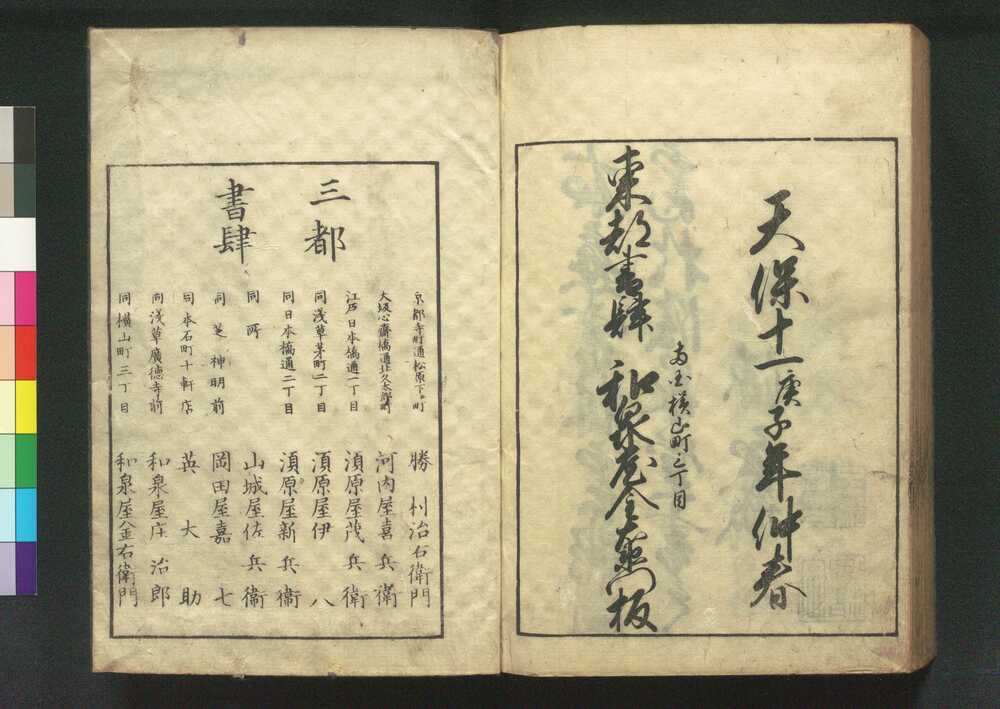 天保十一庚子年仲春
両国横山町三丁目
東都書肆 和泉屋金右衛門板
三都
書肆
京都寺町通松原下ル町 勝村治右衛門
大坂心齋橋通北久太郎町 河内屋喜兵衛
江戸日本橋通一丁目 湏原屋茂兵衛
同浅草茅町二丁目 湏原屋伊八
同日本橋通二丁目 湏原屋新兵衛
同所 山城屋佐兵衛
同芝神明前 岡田屋嘉七
同本石町十軒店 英大助
同浅草廣徳寺前 和泉屋庄治郎
同横山町三丁目 和泉屋金右衛門